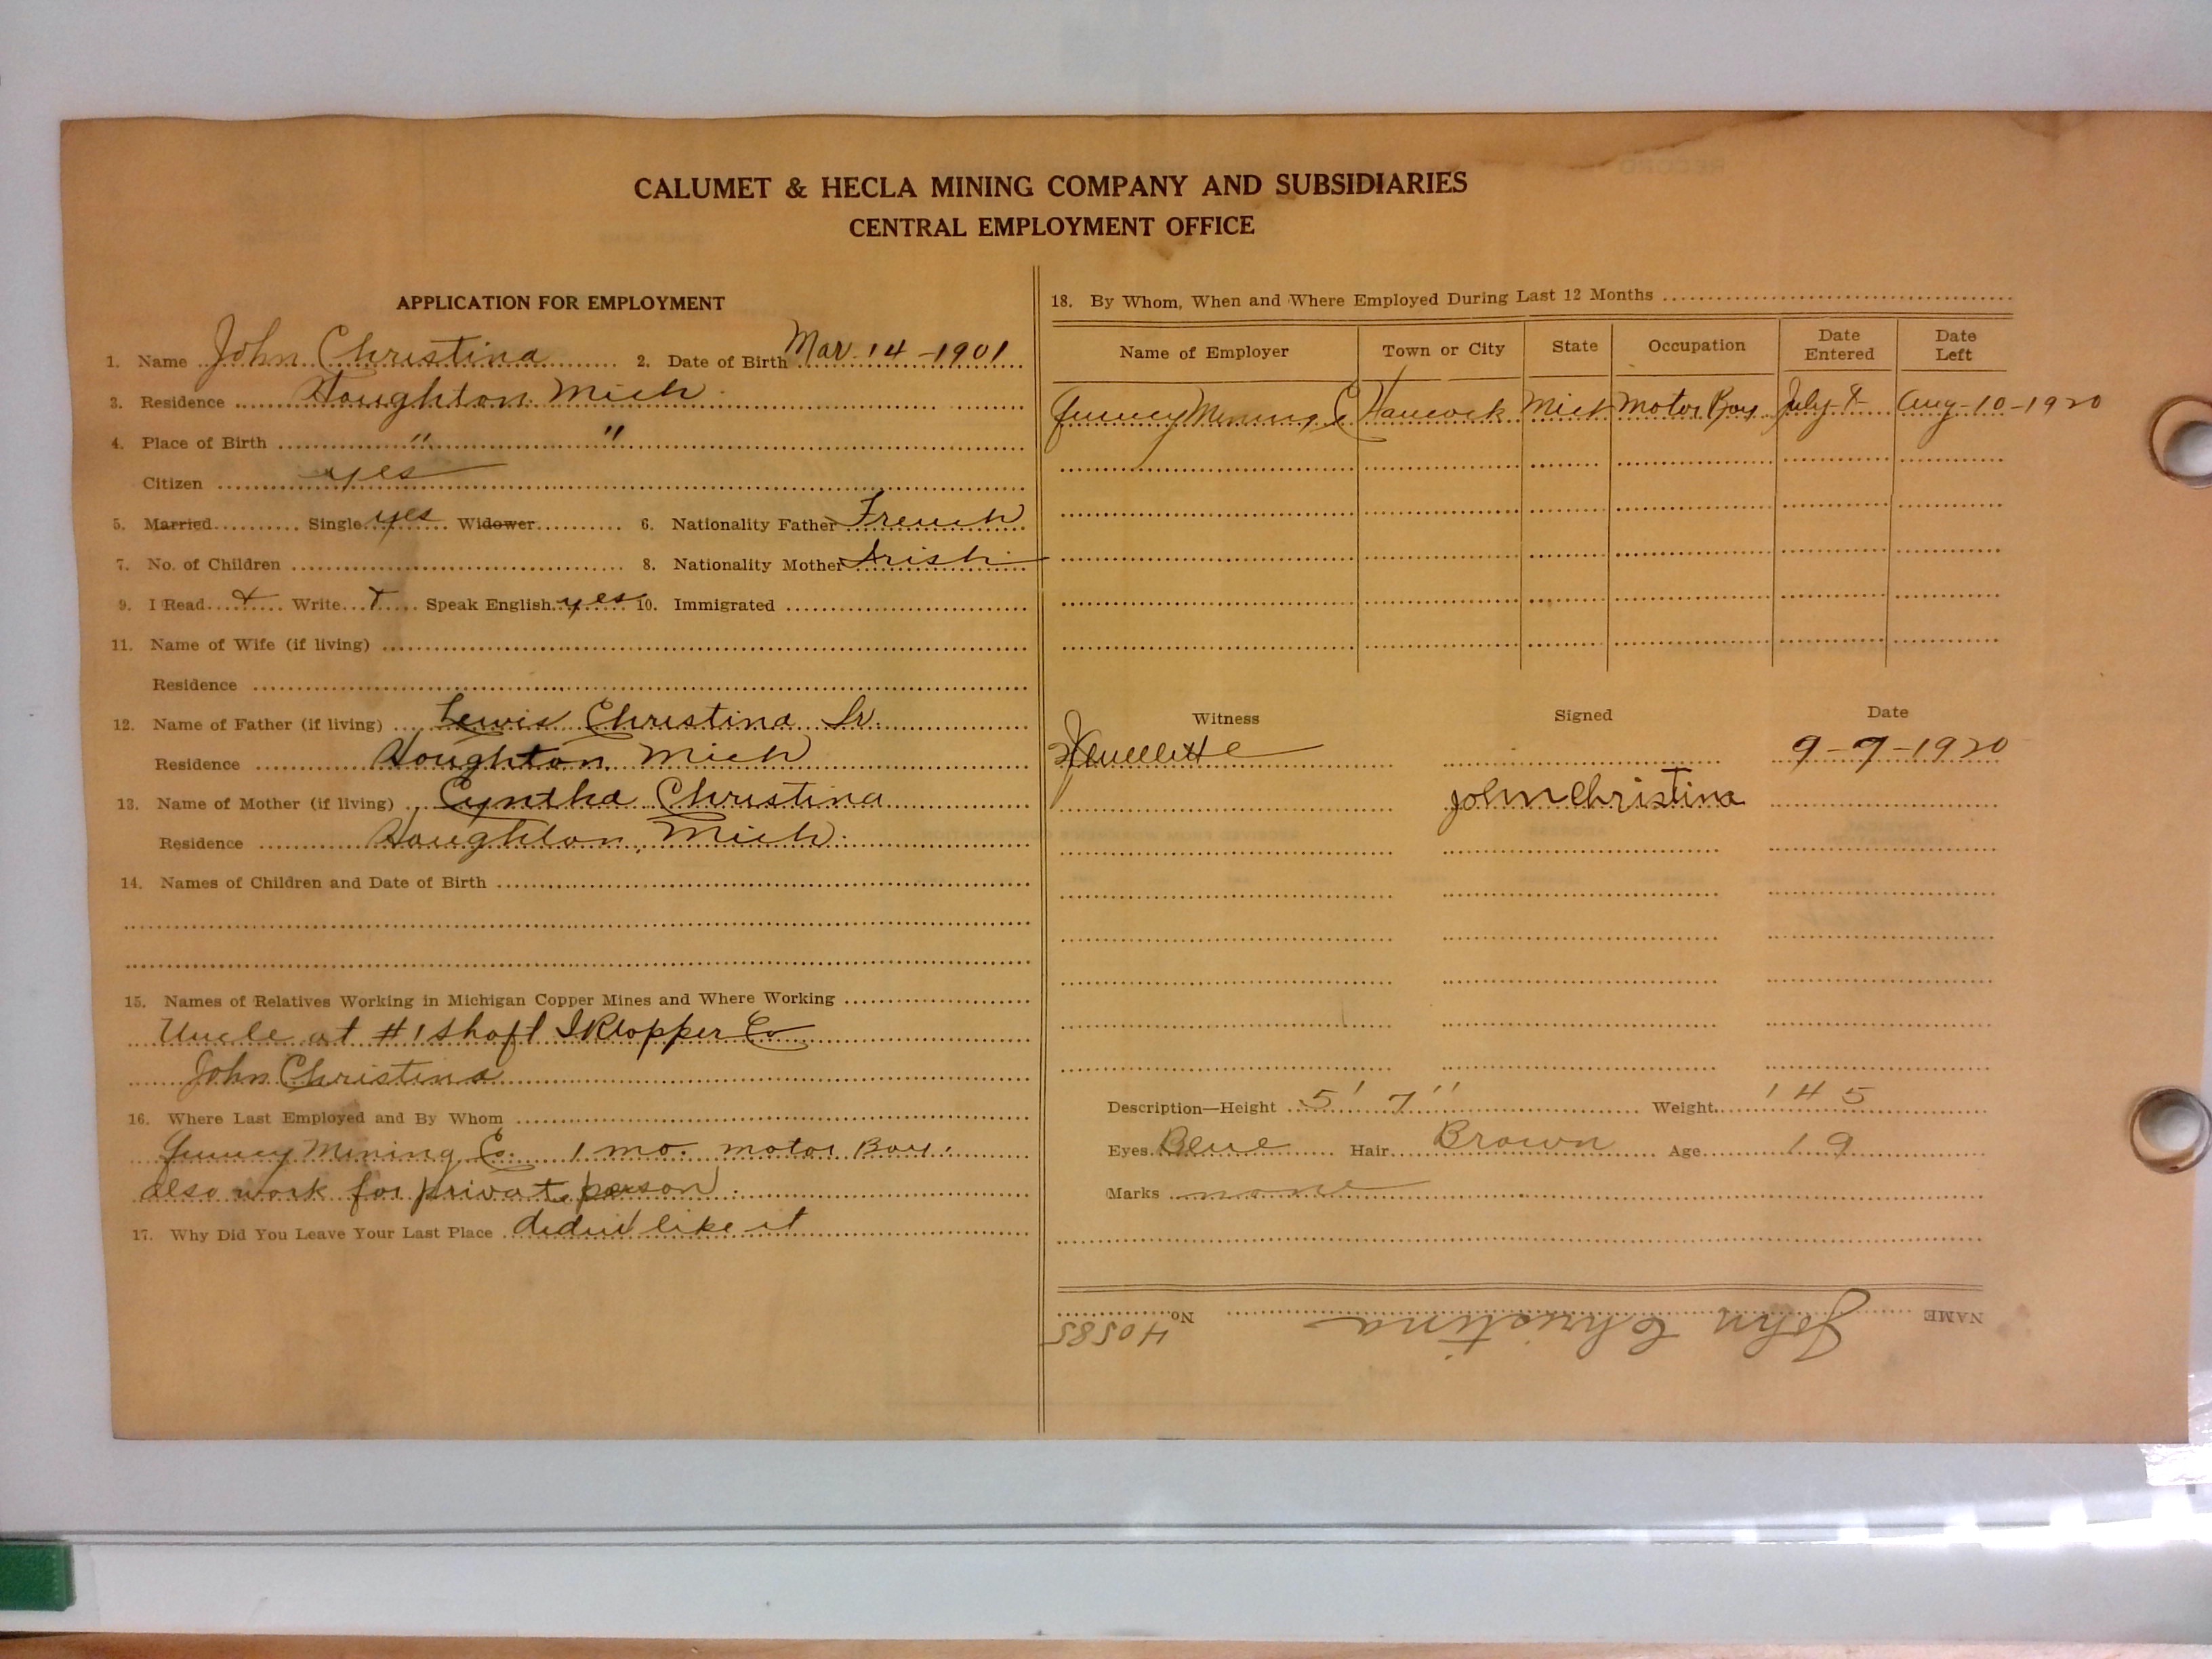 CALUMET & HECLA MINING COMPANY AND SUBSIDIARIES
CENTRAL EMPLOYMENT OFFICE
APPLICATION FOR EMPLOYMENT
1. Name John Christina 2. Date of Birth Mar. 14 - 1901
3. Residence Houghton Mich
4. Place of Birth " "
Citizen yes
5. Married Single yes Widower 6. Nationality Father French
7. No. of Children 8. Nationality Mother Irish
9. I Read Write Speak English yes 10. Immigrated
11. Name of Wife (if living)
Residence
12. Name of Father (if living) Lewis Christina Sr.
Residence Houghton Mich
13. Name of Mother (if living) Cyntha Christina
Residence Houghton, Mich.
14. Names of Children and Date of Birth
15. Names of Relatives Working in Michigan Copper Mines and Where Working
Uncle at #1 Shaft Copper Co
John Christina
16. Where Last Employed and By Whom
Quincy Mining Co. 1 mo. motor Boy.
also work for private person.
17. Why Did You Leave Your Last Place didnt like it
18. By Whom, When and Where Employed During Last 12 Months
Name of Employer Town or City State Occupation Date Entered Date Left
Quincy Mining Co Hancock Mich Motor Boy July Aug-10-1920
Witness Signed Date
9-7-1920
John Christina
Description—Height 5' 7" Weight 145
Eyes Blue Hair Brown Age 19
Marks none
NAME John Christina No. 40585